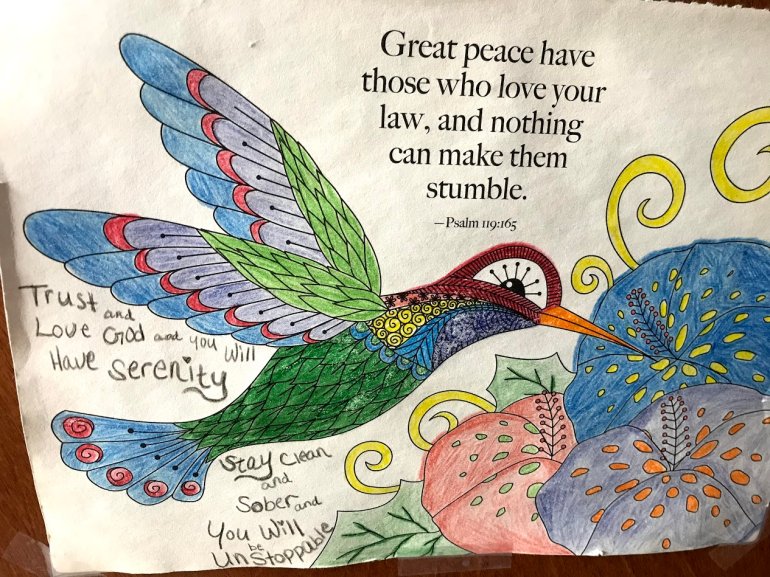 Great peace have
those who love your
law, and nothing
can make them
stumble.
—Psalm 119:165
Trust and
Love God and you Will
Have Serenity
Stay Clean
and
Sober and
You Will
be
UnStoppable